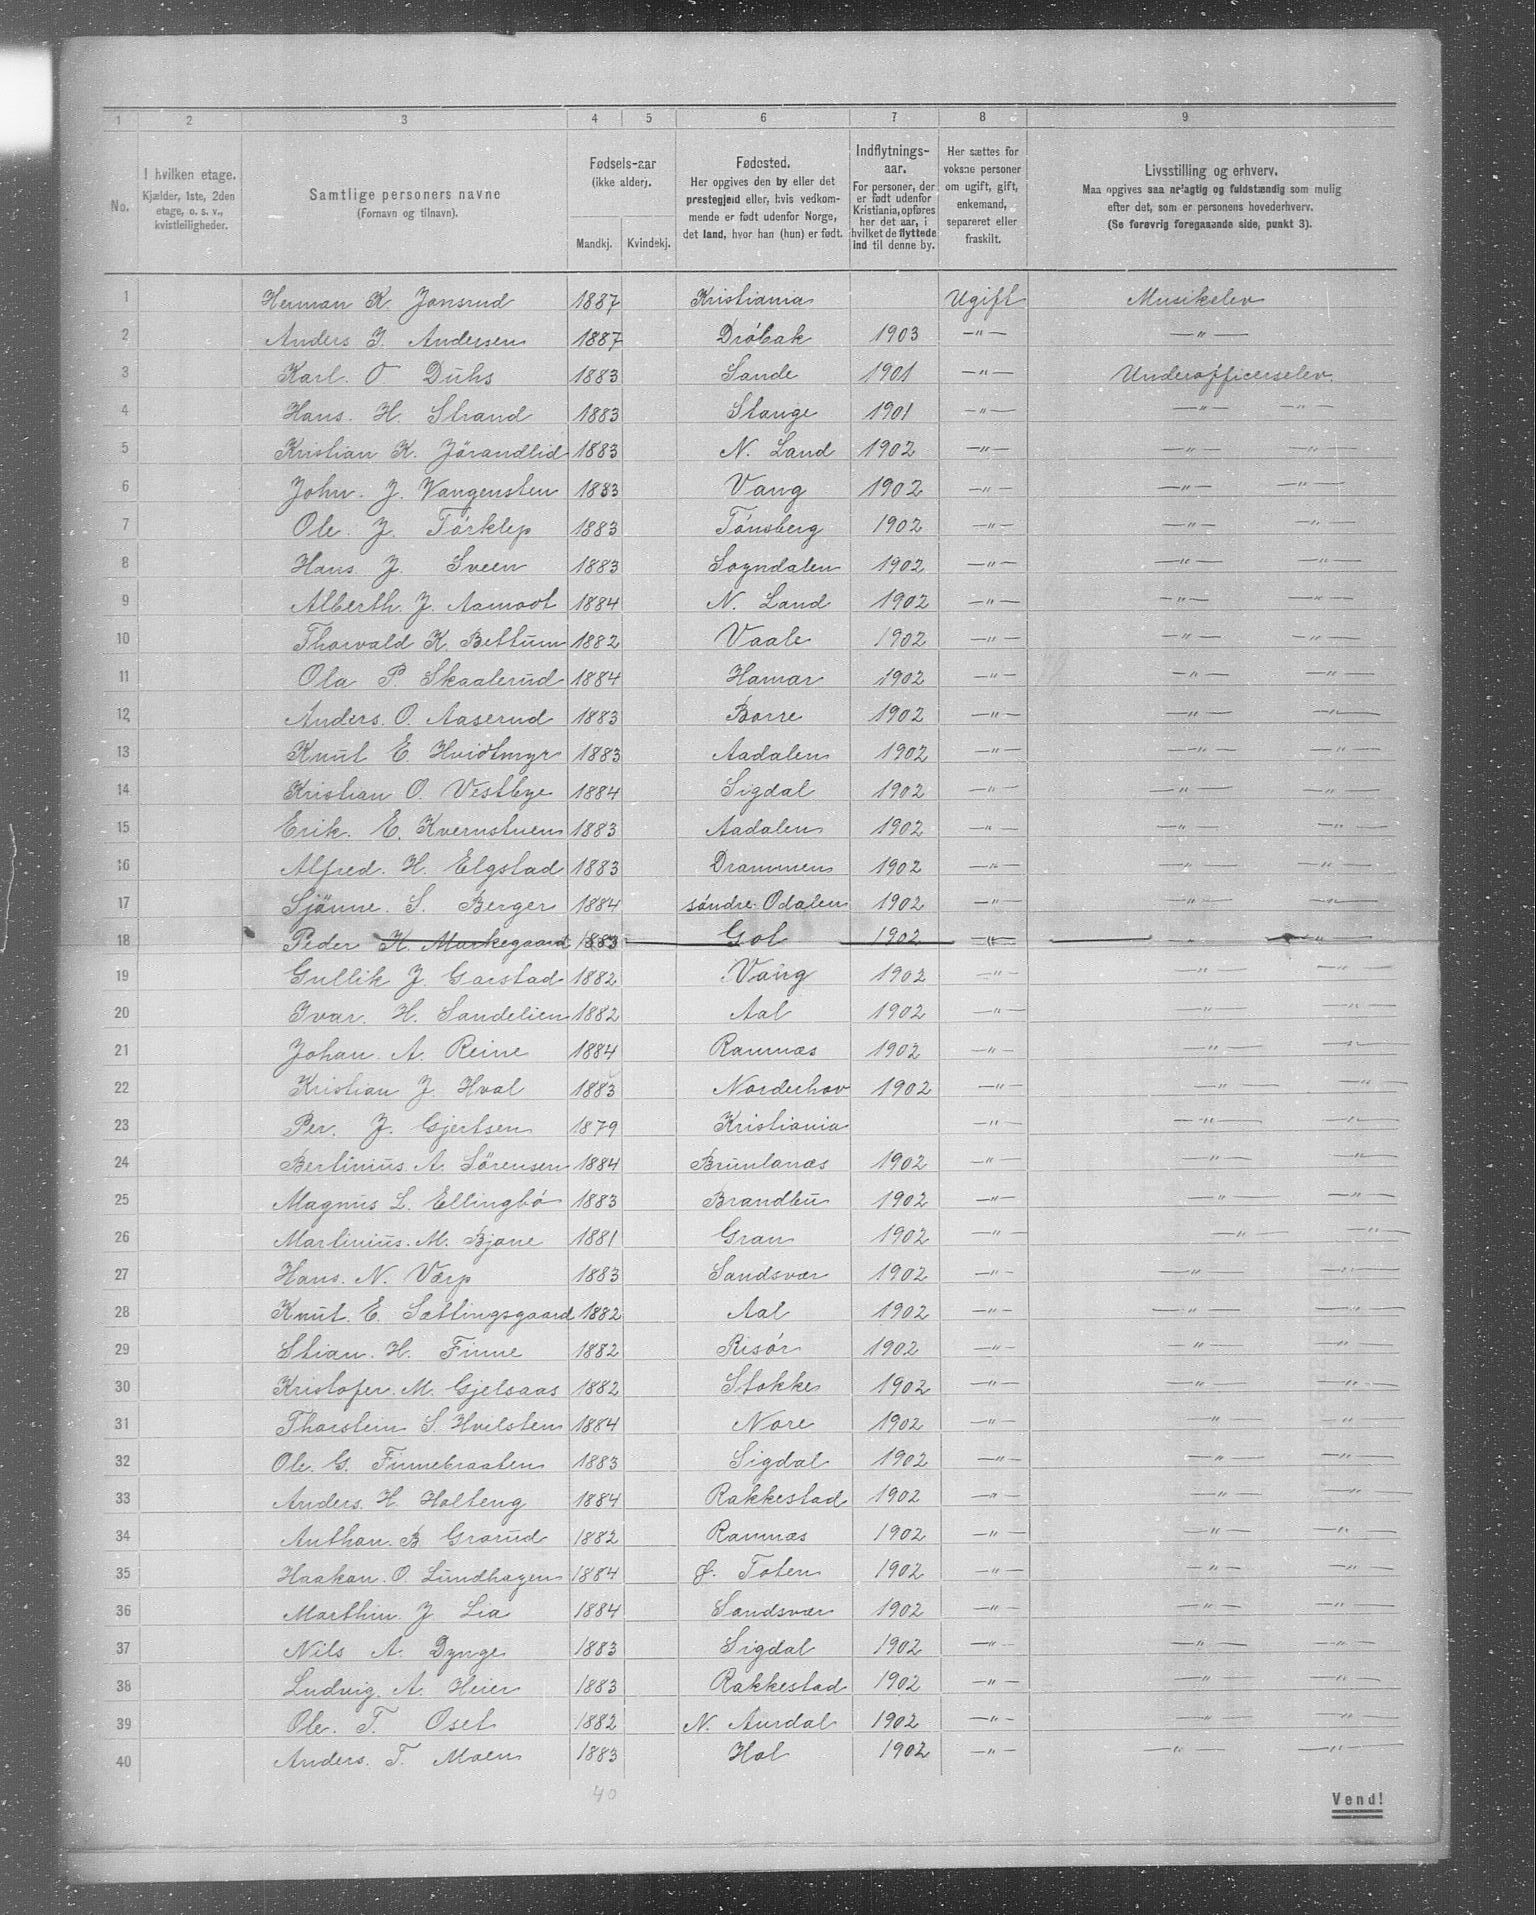 1 2 3 4 5 6 7 8 9
No.
I hvilken etage.
Kjælder, 1ste, 2den
etage, o. s. v.,
kvistleiligheder.
Samtlige personers navne
(Fornavn og tilnavn).
Fødsels-aar
(ikke alder).
Mandkj. Kvindekj.
Fødested.
Her opgives den by eller det
prestegjeld eller, hvis vedkom-
mende er født udenfor Norge,
det land, hvor han (hun) er født.
Indflytnings-
aar.
For personer, der
er født udenfor
Kristiania, opføres
her det aar, i
hvilket de flyttede
ind til denne by.
Her sættes for
voksne personer
om ugift, gift,
enkemand,
separeret eller
fraskilt.
Livsstilling og erhverv.
Maa opgives saa nøiagtig og fuldstændig som mulig
efter det, som er personens hovederhverv.
(Se forøvrig foregaaende side, punkt 3).
1 Herman K. Jonsrud 1887 Kristiania Ugift Musikelev
2 Anders J. Andersen 1887 Drøbak 1903 —"— —"—
3 Karl. O Duhs 1883 Sande 1901 —"— Underofficerselev.
4 Hans. H. Strand 1883 Stange 1901 —"— —"— —"—
5 Kristian K. Jørandlid 1883 N. Land 1902 —"— —"— —"—
6 John. J. Vangensten 1883 Vang 1902 —"— —"— —"—
7 Ole. J. Tørklep 1883 Tønsberg 1902 —"— —"— —"—
8 Hans. J. Sveen 1883 Sogndalen 1902 —"— —"— —"—
9 Alberth. J. Aamodt 1884 N. Land 1902 —"— —"— —"—
10 Thorvald K. Bettum 1882 Vaale 1902 —"— —"— —"—
11 Ola P. Skaalerud 1884 Hamar 1902 —"— —"— —"—
12 Anders. O. Aaserud 1883 Borre 1902 —"— —"— —"—
13 Knut E. Hvidtmyr 1883 Aadalen 1902 —"— —"— —"—
14 Kristian O. Vestbye 1884 Sigdal 1902 —"— —"— —"—
15 Erik. E. Kvernstuen 1883 Aadalen 1902 —"— —"— —"—
16 Alfred. H. Elgstad 1883 Drammen 1902 —"— —"— —"—
17 Sjønne. S. Berger 1884 søndre Odalen 1902 —"— —"— —"—
18 Peder K. Markegaard 1883 Gol 1902 —"— —"— —"—
19 Gullik J. Garstad 1882 Vang 1902 —"— —"— —"—
20 Ivar. H. Sandelien 1882 Aal 1902 —"— —"— —"—
21 Johan. A. Reine 1884 Ramnæs 1902 —"— —"— —"—
22 Kristian J. Hval 1883 Norderhov 1902 —"— —"— —"—
23 Per. J. Gjertsen 1879 Kristiania —"— —"— —"—
24 Bertinius. A. Sørensen 1884 Brunlanæs 1902 —"— —"— —"—
25 Magnus L. Ellingbø 1883 Brandbu 1902 —"— —"— —"—
26 Martinius. M. Bjone 1881 Gran 1902 —"— —"— —"—
27 Hans. N. Værp 1883 Sandsvær 1902 —"— —"— —"—
28 Knut. E. Sættingsgaard 1882 Aal 1902 —"— —"— —"—
29 Stian. H. Finne 1882 Risør 1902 —"— —"— —"—
30 Kristofer. M. Gjelsaas 1882 Stokke 1902 —"— —"— —"—
31 Thorstein S. Hvilsten 1884 Nore 1902 —"— —"— —"—
32 Ole. G. Finnebraaten 1883 Sigdal 1902 —"— —"— —"—
33 Anders. H. Holteng 1884 Rakkestad 1902 —"— —"— —"—
34 Anthon. B Grorud 1882 Ramnæs 1902 —"— —"— —"—
35 Haakon. O. Lundhagen 1884 Ø. Toten 1902 —"— —"— —"—
36 Marthin. J Lia 1884 Sandsvær 1902 —"— —"— —"—
37 Nils A. Dynge 1883 Sigdal 1902 —"— —"— —"—
38 Ludvig. A. Heier 1883 Rakkestad 1902 —"— —"— —"—
39 Ole. T. Oset 1882 N. Aurdal 1902 —"— —"— —"—
40 Anders. T. Moen 1883 Hol 1902 —"— —"— —"—
40
Vend!